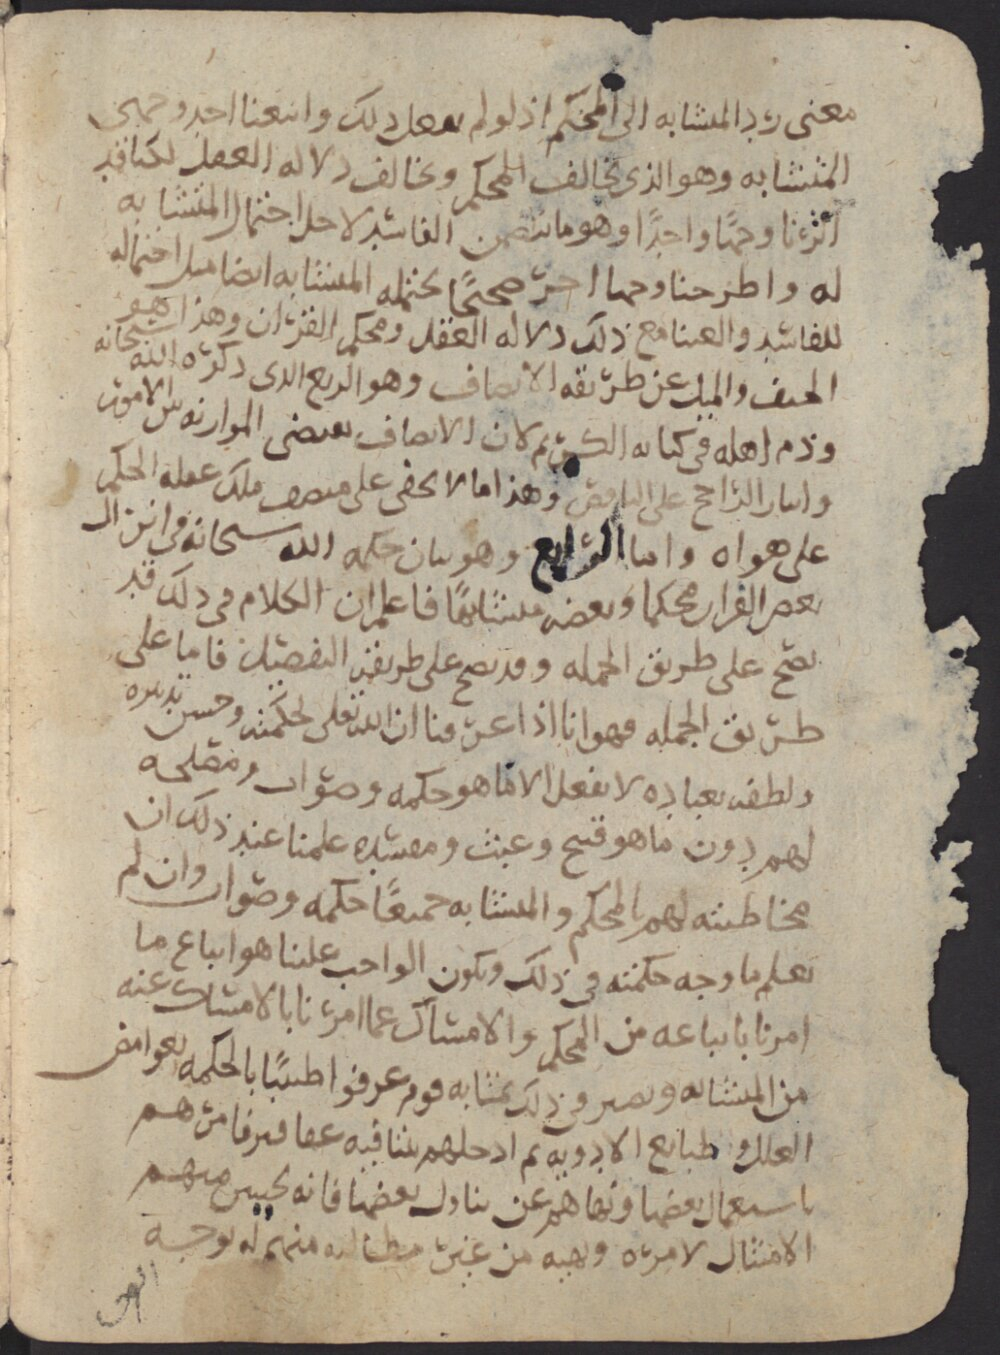 معنى رد المتشابه الى المحكم اذ لو لم نفعل ذلك واتبعنا احد وجهى
المتشابه وهو الذى يخالف المحكم ويخالف دلاله العقل لكنا قد
اثرنا وجها واحدا وهو ما يتضمن الفاسد لاجل احتمال المتشابه
له واطرحنا وجها اخر صحيحا يحتمله المتشابه ايضا مثل احتماله
للفاسد والغينا مع ذلك دلاله العقل ومحكم القران وهذا هو
الحيف والميل عن طريقه الانصاف وهو الزيغ الذى ذكره الله سبحانه
وذم اهله فى كتابه الكريم لان الانصاف يقتضى الموازنه بين الامور
وايثار الراجح على الناقص وهذا ما لا يخفى على منصف ملك عقله الحكم
على هواه واما الرابع وهو بيان حكمه الله سبحانه فى انزال
بعض القران محكما وبعضه متشابها فاعلم ان الكلام فى ذلك قد
يصح على طريق الجمله وقد يصح على طريقه التفصيل فاما على
طريق الجمله فهو انا اذا عرفنا ان الله تعلى لحكمته وحسن تدبيره
ولطفه بعباده لا يفعل الا ما هو حكمه وصواب ومصلحه
لهم دون ما هو قبيح وعبث ومفسده علمنا عند ذلك ان
مخاطبته لهم بالمحكم والمتشابه جميعا حكمه وصواب وان لم
نعلم ما وجه حكمته فى ذلك ويكون الواجب علينا هو اتباع ما
امرنا باتباعه من المحكم والامساك عما امرنا بالامساك عنه
من المتشابه ونصير فى ذلك بمثابه قوم عرفوا طبيبا بالحكمه بغوامض
العلل وطبايع الادويه ثم ادخلهم بيتا فيه عقاقير فامرهم
باستعمال بعضها ونهاهم عن تناول بعضها فانه يحسن منهم
الامتثال لامره ونهيه من غير مطالبه منهم له بوجه